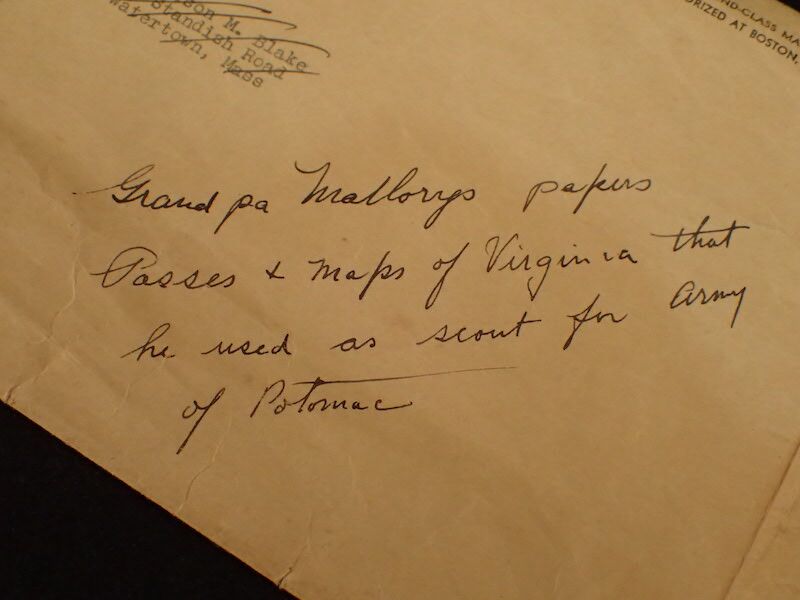 son M. Blake
Standish Road
Watertown, Mass
ORIZED AT BOSTON,
Grandpa Mallorys papers
Passes & maps of Virginia that
he used as scout for Army
of Potomac